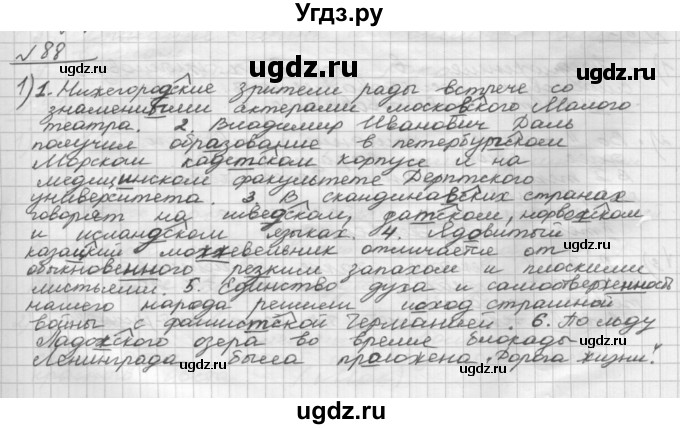 Угдз.ру
№88
1) 1. Нижегородские зрители рады встрече со
знаменитыми актерами московского Малого
театра. 2. Владимир Иванович Даль
получил образование в петербургском
Морском кадетском корпусе и на
медицинском факультете Дерптского
университета. 3. В скандинавских странах
говорят на шведском, датском, норвежском
и исландском языках. 4. Ядовитый
казацкий можжевельник отличается от
обыкновенного резким запахом и плоскими
листьями. 5. Единство духа и самоотверженность
нашего народа решили исход страшной
войны с фашистской Германией. 6. По льду
Ладожского озера во время блокады
Ленинграда была проложена „Дорога жизни“.
ugdz.ru
ugdz.ru
ugdz.ru
ugdz.ru
ugdz.ru
ugdz.ru
ugdz.ru
ugdz.ru
ugdz.ru
ugdz.ru
ugdz.ru
ugdz.ru
ugdz.ru
ugdz.ru